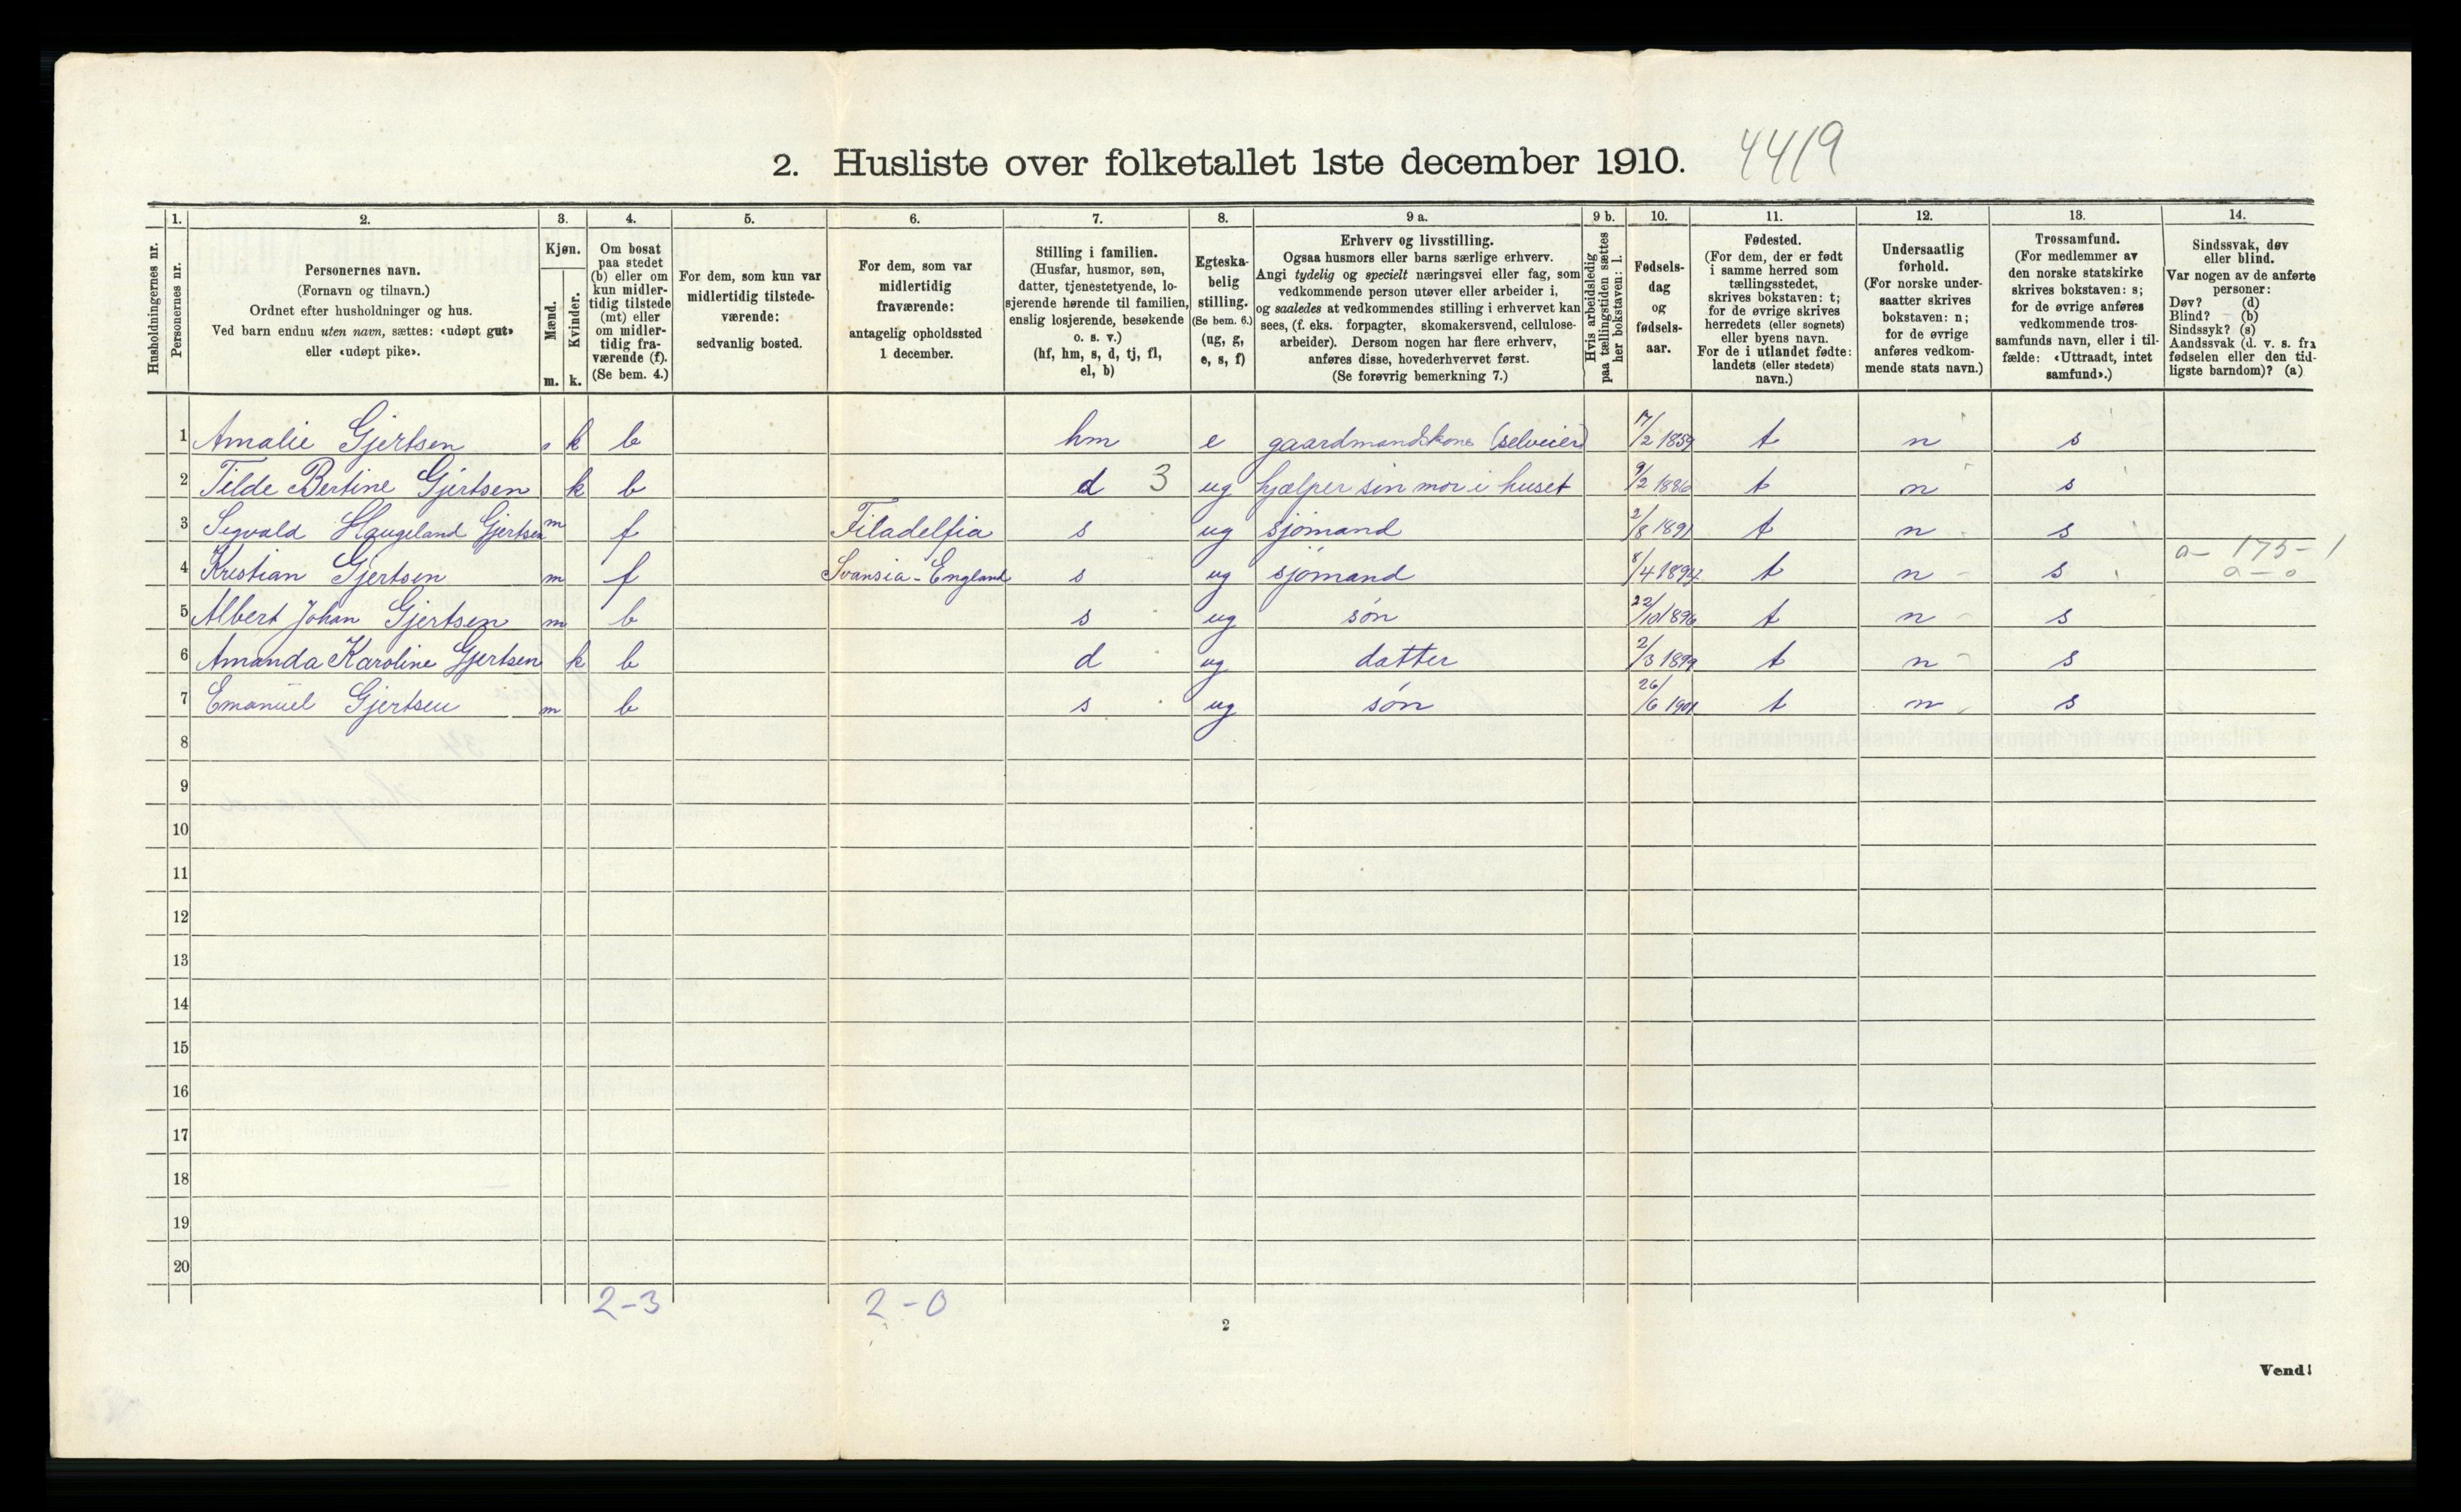 2. Husliste over folketallet 1ste december 1910. 4419
Husholdningernes nr.
1. Personernes nr.
2. Personernes navn.
(Fornavn og tilnavn.)
Ordnet efter husholdninger og hus.
Ved barn endnu uten navn, sættes: «udøpt gut»
eller «udøpt pike».
3. Kjøn.
Mænd. m.
Kvinder. k.
4. Om bosat
paa stedet
(b) eller om
kun midler-
tidig tilstede
(mt) eller
om midler-
tidig fra-
værende (f).
(Se bem. 4.)
5. For dem, som kun var
midlertidig tilstede-
værende:
sedvanlig bosted.
6. For dem, som var
midlertidig
fraværende:
antagelig opholdssted
1 december.
7. Stilling i familien.
(Husfar, husmor, søn,
datter, tjenestetyende, lo-
sjerende hørende til familien,
enslig losjerende, besøkende
o. s. v.)
(hf, hm, s, d, tj, fl,
el, b)
8. Egteska-
belig
stilling.
(Se bem. 6.)
(ug, g,
e, s, f)
9 a. Erhverv og livsstilling.
Ogsaa husmors eller barns særlige erhverv.
Angi tydelig og specielt næringsvei eller fag, som
vedkommende person utøver eller arbeider i,
og saaledes at vedkommendes stilling i erhvervet kan
sees, (f. eks. forpagter, skomakersvend, cellulose-
arbeider). Dersom nogen har flere erhverv,
anføres disse, hovederhvervet først.
(Se forøvrig bemerkning 7.)
9 b. Hvis arbeidsledig
paa tællingstiden sættes
her bokstaven: l.
10. Fødsels-
dag
og
fødsels-
aar.
11. Fødested.
(For dem, der er født
i samme herred som
tællingsstedet,
skrives bokstaven: t;
for de øvrige skrives
herredets (eller sognets)
eller byens navn.
For de i utlandet fødte:
landets (eller stedets)
navn.)
12. Undersaatlig
forhold.
(For norske under-
saatter skrives
bokstaven: n;
for de øvrige
anføres vedkom-
mende stats navn.)
13. Trossamfund.
(For medlemmer av
den norske statskirke
skrives bokstaven: s;
for de øvrige anføres
vedkommende tros-
samfunds navn, eller i til-
fælde: «Uttraadt, intet
samfund».)
14. Sindssvak, døv
eller blind.
Var nogen av de anførte
personer:
Døv? (d)
Blind? (b)
Sindssyk? (s)
Aandssvak (d. v. s. fra
fødselen eller den tid-
ligste barndom)? (a)
1 Amalie Gjertsen k b hm e gaardmandskone (selveier) 17/2 1859 t n s
2 Tilde Bertine Gjertsen k b d 3 ug hjælper sin mor i huset 9/2 1886 t n s
3 Sigvald Haugeland Gjertsen m f Filadelfia s ug sjømand 2/8 1891 t n s
4 Kristian Gjertsen m f Svansia - England s ug sjømand 8/4 1894 t n s a - 175 - 1
a - 0
5 Albert Johan Gjertsen m b s ug søn 22/10 1896 t n s
6 Amanda Karoline Gjertsen k b d ug datter 2/3 1899 t n s
7 Emanuel Gjertsen m b s ug søn 26/6 1901 t n s
8
9
10
11
12
13
14
15
16
17
18
19
20
2-3 2-0
2
Vend!